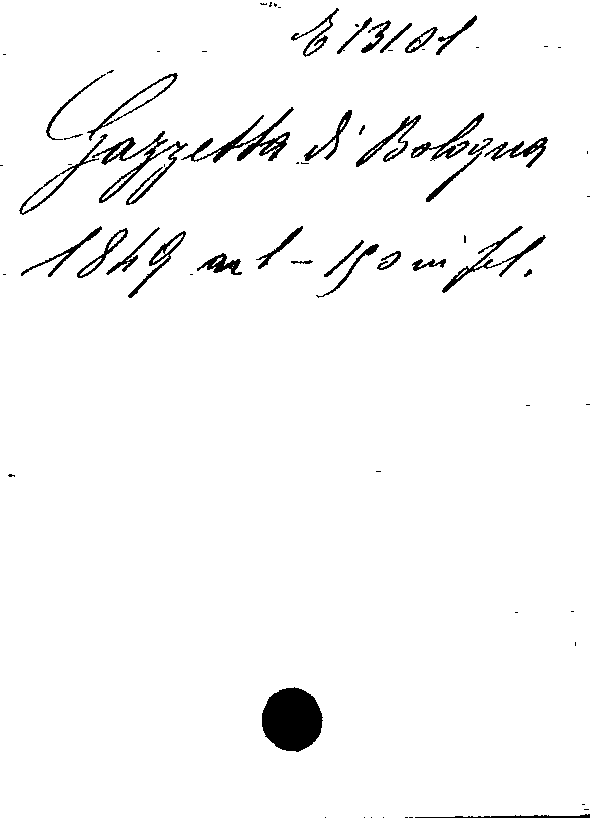 E 13101
Gazzetta di Bologna
1849 nn 1 - 150 in fol.